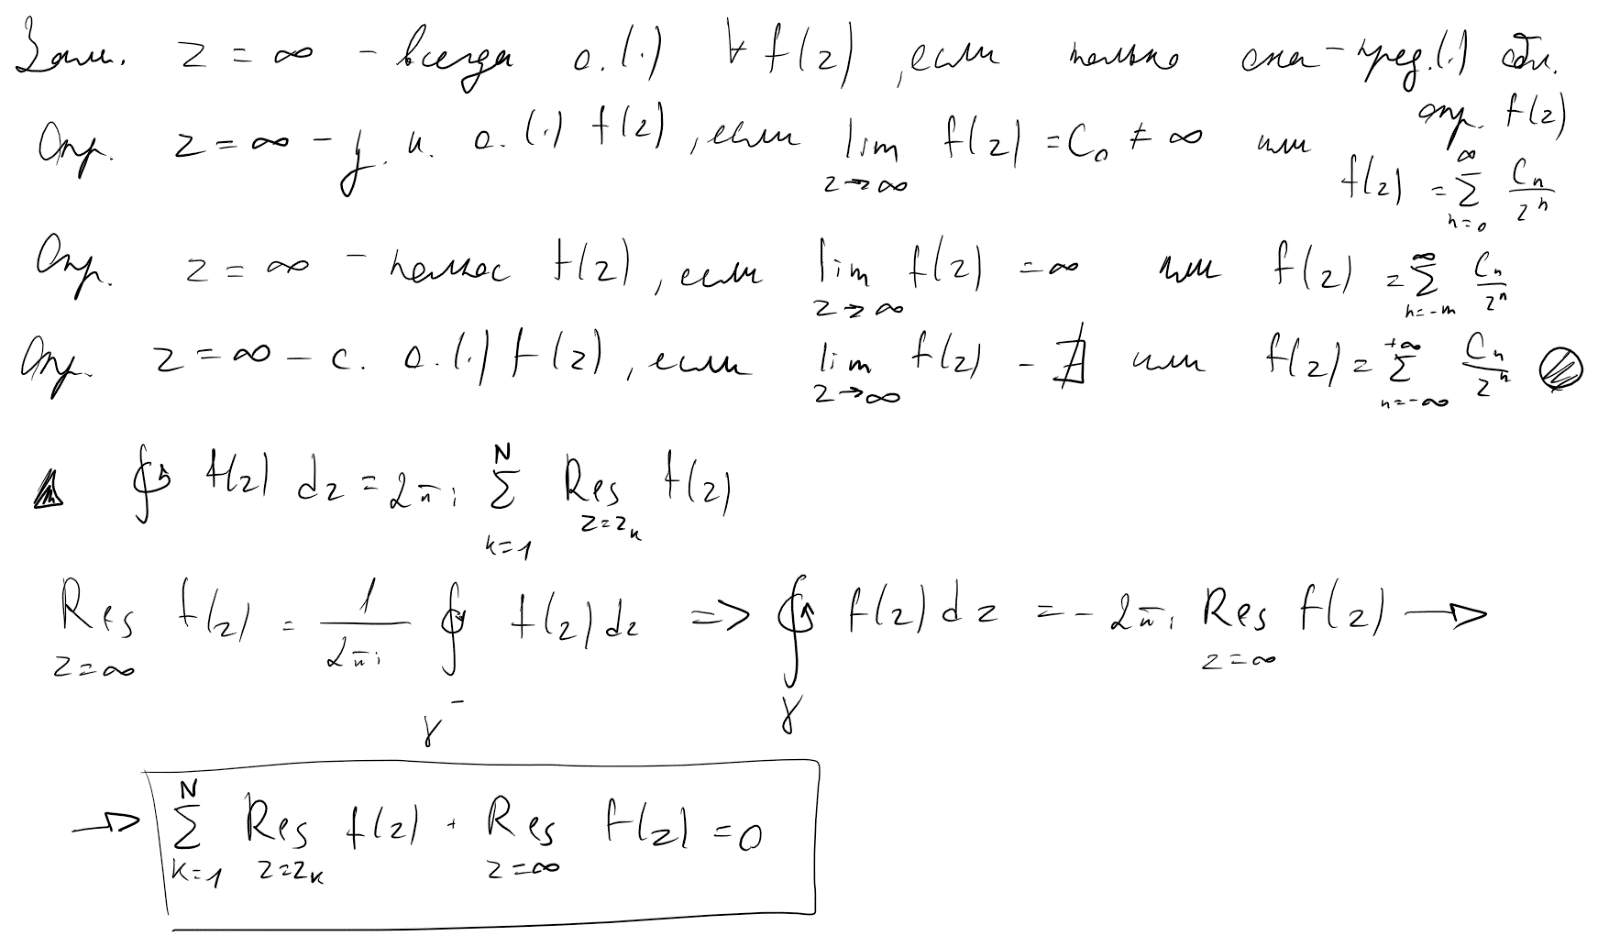 Зам. z = ∞ - всегда о. (·) ∀ f(z), если только она - пред. (·) обл. опр. f(z)
Опр. z = ∞ - у. и. о. (·) f(z), если lim_{z→∞} f(z) = C₀ ≠ ∞ или f(z) = ∑_{n=0}^{∞} Cₙ/zⁿ
Опр. z = ∞ - полюс f(z), если lim_{z→∞} f(z) = ∞ или f(z) = ∑_{n=-m}^{∞} Cₙ/zⁿ
Опр. z = ∞ - с. о. (·) f(z), если lim_{z→∞} f(z) - ∄ или f(z) = ∑_{n=-∞}^{+∞} Cₙ/zⁿ
∮ f(z) dz = 2πi ∑_{k=1}^{N} Res_{z=z_k} f(z)
Res_{z=∞} f(z) = 1/(2πi) ∮_{γ⁻} f(z) dz => ∮_{γ} f(z) dz = - 2πi Res_{z=∞} f(z) →
→ ∑_{k=1}^{N} Res_{z=z_k} f(z) + Res_{z=∞} f(z) = 0